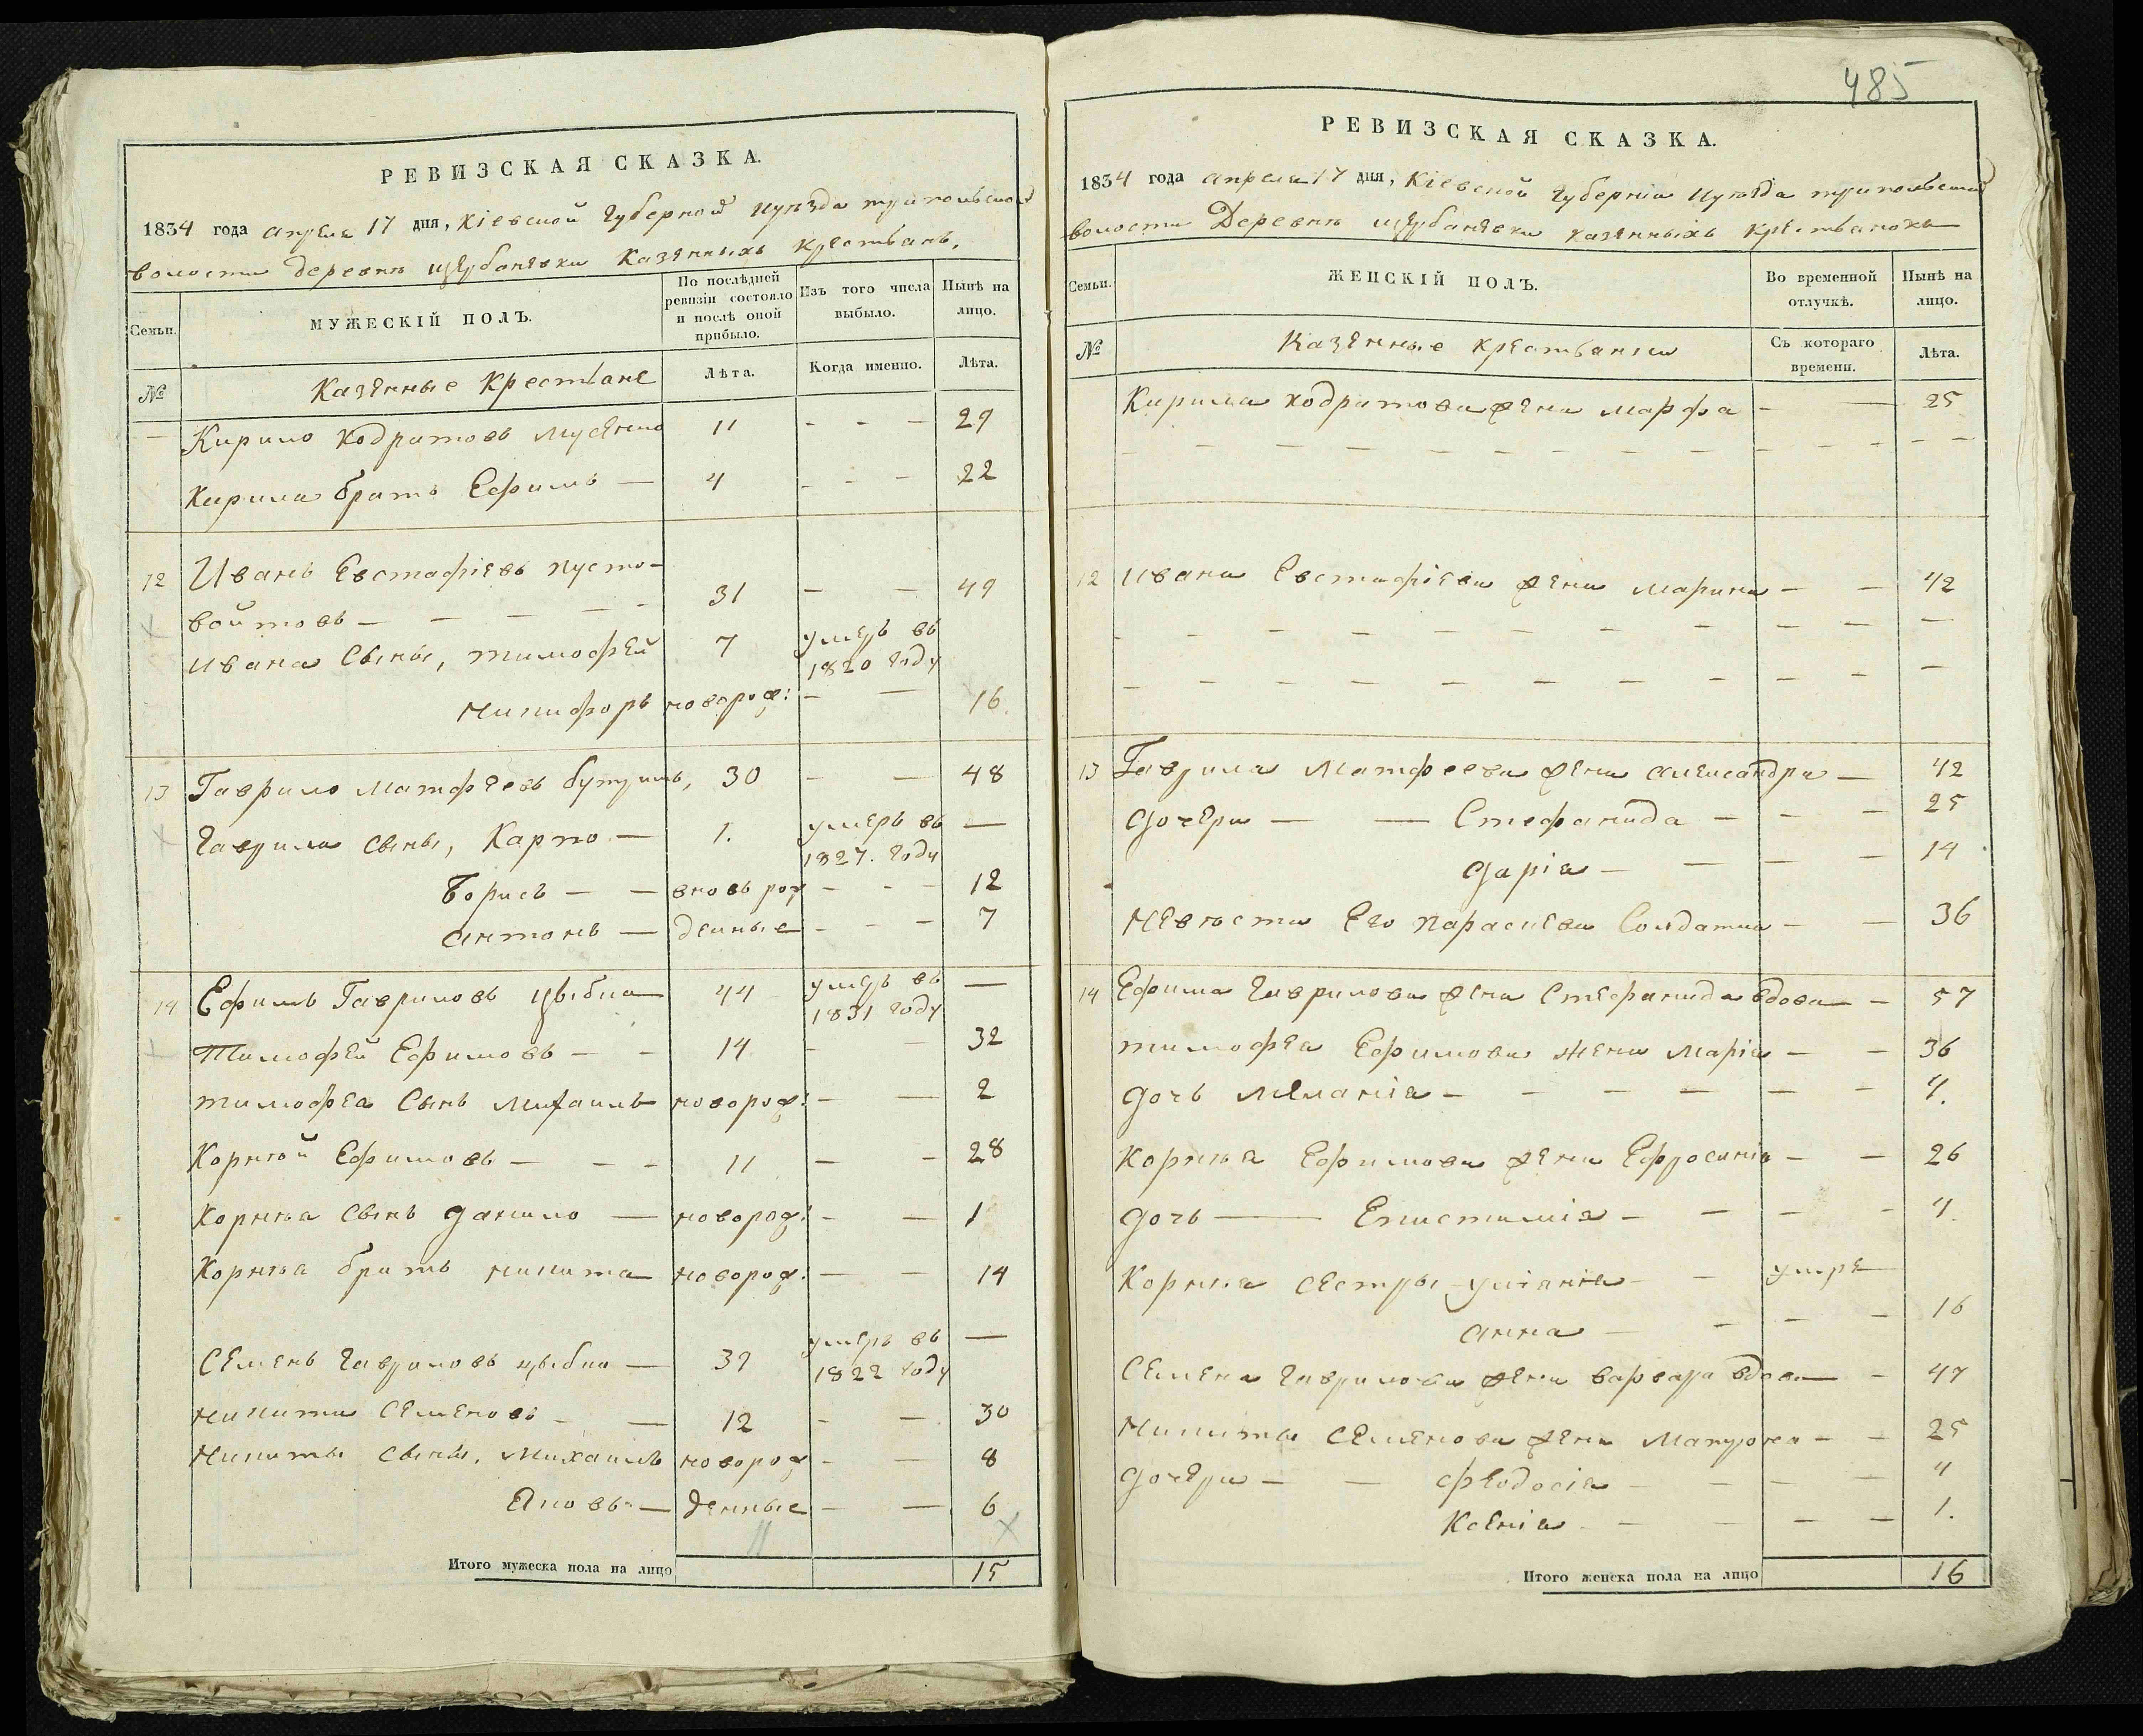 РЕВИЗСКАЯ СКАЗКА.
1834 года апреля 17 дня, Кіевской Губерной и уезда трипольской
волости деревнѣ щербаневки Казенныхъ крестьанъ,
Семьи.
МУЖЕСКІЙ ПОЛЪ.
По послѣдней ревизіи состояло и послѣ оной прибыло.
Изъ того числа выбыло.
Нынѣ на лицо.
№
Казенные Крестьане
Лѣта.
Когда именно.
Лѣта.
— Кирило Кодратовъ Мусенко 11 - - - 29
Кирила братъ Ефимъ — 4 - - - 22
12 Иванъ Евстафіевъ пусто-
войтовъ — — — — - 31 — — 49
Ивана Сыны, тимофей 7 умеръ въ
1820 году
никифоръ новорож: — — 16.
13 Гаврило Матфеевъ бутримъ, 30 — — 48
Гаврила сыны, Карпо — 1. умеръ въ —
1827. году
Борисъ — — вновь рож - - - 12
антонъ — денные - - - 7
14 Ефимъ Гавриловъ цыбка 44 умеръ въ —
1831 году
Тимофей Ефимовъ — - 14 — — 32
тимофеа Сынъ Михаилъ новорож: — — 2
Корнѣй Ефимовъ — - - 11 — - 28
Корнѣа Сынъ данило — новорож: - — 1
Корнѣа братъ никита новорож: — — 14
Семенъ Гавриловъ цыбка — 39 умеръ въ —
1822 году
никита Семеновъ - — 12 - — 30
Никиты Сыны, Михаилъ новорож - — 8
Яковъ — денные — — 6
11
Итого мужеска пола на лицо 15
485
РЕВИЗСКАЯ СКАЗКА.
1834 года апреля 17 дня, Кіевской Губерніи и уезда трипольской
волости Деревнѣ щербаневки казенныхъ крестьанокъ
Семьи.
ЖЕНСКІЙ ПОЛЪ.
Во временной отлучкѣ.
Нынѣ на лицо.
№
Казенные крестьанки
Съ котораго времени.
Лѣта.
Кирила кодратова жена марфа - — 25
12 Ивана Евстафіева жена марина — — 42
13 Гаврила Матфеева жена александра — 42
дочери — — Стефанида — - — 25
даріа — — — — 14
Невѣста Его параскева Солдатка — — 36
14 Ефима Гаврилова жена Стефанида вдова — - 57
тимофеа Ефимова жена Маріа — — 36
дочь Меланіа — - — — — — 4.
Корнѣа Ефимова жена Ефросиніа — — 26
дочь — Епистиміа — — - - 4.
Корнѣа сестры уліаніа — - умре
анна — - - - 16
Семена Гаврилова жена варвара вдова — - 47
Никиты Семенова жена Матрона — — 25
дочери — — феодосіа — - — — 4
Ксеніа — — — — 1.
Итого женска пола на лицо 16